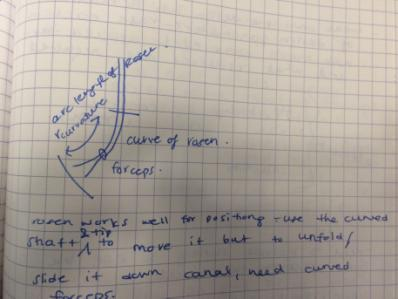 arc length of rosen
curvature
curve of rosen.
forceps.
rosen works well for positiong - use the curved
shaft & tip to move it but to unfold/
slide it down canal, need curved
forceps.